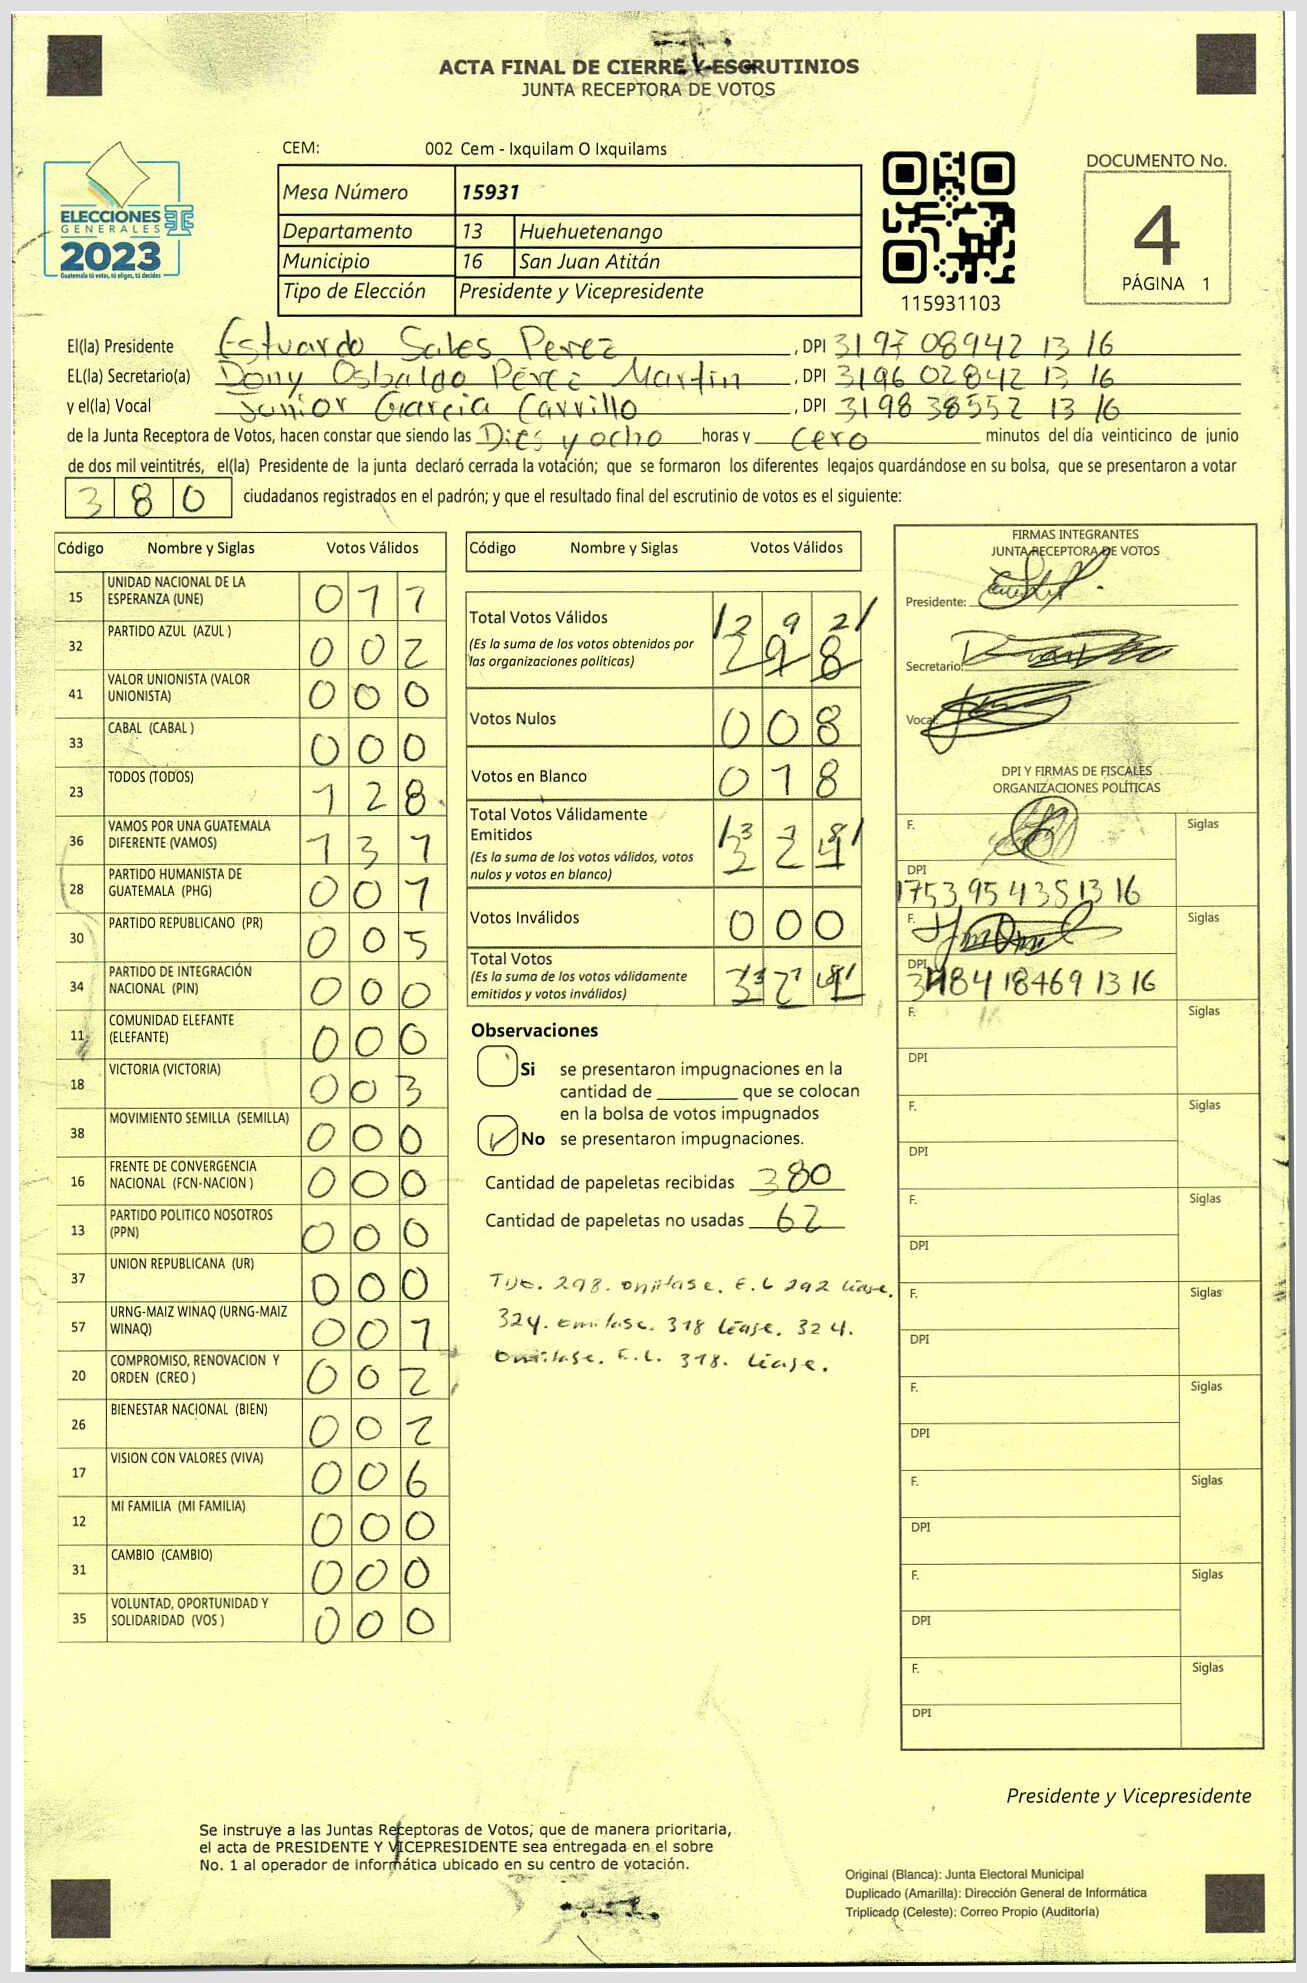 ACTA FINAL DE CIERRE Y ESCRUTINIOS
JUNTA RECEPTORA DE VOTOS
ELECCIONES
GENERALES
2023
Guatemala tú votas, tú eliges, tú decides
CEM: 002 Cem - Ixquilam O Ixquilams
Mesa Número 15931
Departamento 13 Huehuetenango
Municipio 16 San Juan Atitán
Tipo de Elección Presidente y Vicepresidente
115931103
DOCUMENTO No.
4
PÁGINA 1
El(la) Presidente Estuardo Sales Perez, DPI 3197 08942 13 16
EL(la) Secretario(a) Dony Osbaldo Pérez Martin, DPI 3196 02842 13 16
y el(la) Vocal Junior Garcia Carrillo, DPI 3198 38552 13 16
de la Junta Receptora de Votos, hacen constar que siendo las Dies y ocho horas y cero minutos del día veinticinco de junio
de dos mil veintitrés, el(la) Presidente de la junta declaró cerrada la votación; que se formaron los diferentes legajos guardándose en su bolsa, que se presentaron a votar
380 ciudadanos registrados en el padrón; y que el resultado final del escrutinio de votos es el siguiente:
Código Nombre y Siglas Votos Válidos
15 UNIDAD NACIONAL DE LA ESPERANZA (UNE) 011
32 PARTIDO AZUL (AZUL ) 002
41 VALOR UNIONISTA (VALOR UNIONISTA) 000
33 CABAL (CABAL ) 000
23 TODOS (TODOS) 128
36 VAMOS POR UNA GUATEMALA DIFERENTE (VAMOS) 131
28 PARTIDO HUMANISTA DE GUATEMALA (PHG) 001
30 PARTIDO REPUBLICANO (PR) 005
34 PARTIDO DE INTEGRACIÓN NACIONAL (PIN) 000
11 COMUNIDAD ELEFANTE (ELEFANTE) 000
18 VICTORIA (VICTORIA) 003
38 MOVIMIENTO SEMILLA (SEMILLA) 000
16 FRENTE DE CONVERGENCIA NACIONAL (FCN-NACION ) 000
13 PARTIDO POLITICO NOSOTROS (PPN) 000
37 UNION REPUBLICANA (UR) 000
57 URNG-MAIZ WINAQ (URNG-MAIZ WINAQ) 001
20 COMPROMISO, RENOVACION Y ORDEN (CREO ) 002
26 BIENESTAR NACIONAL (BIEN) 002
17 VISION CON VALORES (VIVA) 006
12 MI FAMILIA (MI FAMILIA) 000
31 CAMBIO (CAMBIO) 000
35 VOLUNTAD, OPORTUNIDAD Y SOLIDARIDAD (VOS ) 000
Código Nombre y Siglas Votos Válidos
Total Votos Válidos /292/ 298
(Es la suma de los votos obtenidos por
las organizaciones políticas)
Votos Nulos 008
Votos en Blanco 018
Total Votos Válidamente
Emitidos /318/ 324
(Es la suma de los votos válidos, votos
nulos y votos en blanco)
Votos Inválidos 000
Total Votos /318/ 324
(Es la suma de los votos válidamente
emitidos y votos inválidos)
Observaciones
Si se presentaron impugnaciones en la
cantidad de ________ que se colocan
en la bolsa de votos impugnados
No se presentaron impugnaciones.
Cantidad de papeletas recibidas 380
Cantidad de papeletas no usadas 62
298. omitase. E.L 292 léase.
324. omitase. 318 léase. 324.
omitase. E.L. 318. léase.
FIRMAS INTEGRANTES
JUNTA RECEPTORA DE VOTOS
Presidente:
Secretario:
Vocal:
DPI Y FIRMAS DE FISCALES
ORGANIZACIONES POLÍTICAS
F. Siglas
DPI
1753 95435 13 16
F. Siglas
DPI
3484 18469 13 16
F. Siglas
DPI
F. Siglas
DPI
F. Siglas
DPI
F. Siglas
DPI
F. Siglas
DPI
F. Siglas
DPI
F. Siglas
DPI
F. Siglas
DPI
Presidente y Vicepresidente
Se instruye a las Juntas Receptoras de Votos, que de manera prioritaria,
el acta de PRESIDENTE Y VICEPRESIDENTE sea entregada en el sobre
No. 1 al operador de informática ubicado en su centro de votación.
Original (Blanca): Junta Electoral Municipal
Duplicado (Amarilla): Dirección General de Informática
Triplicado (Celeste): Correo Propio (Auditoría)